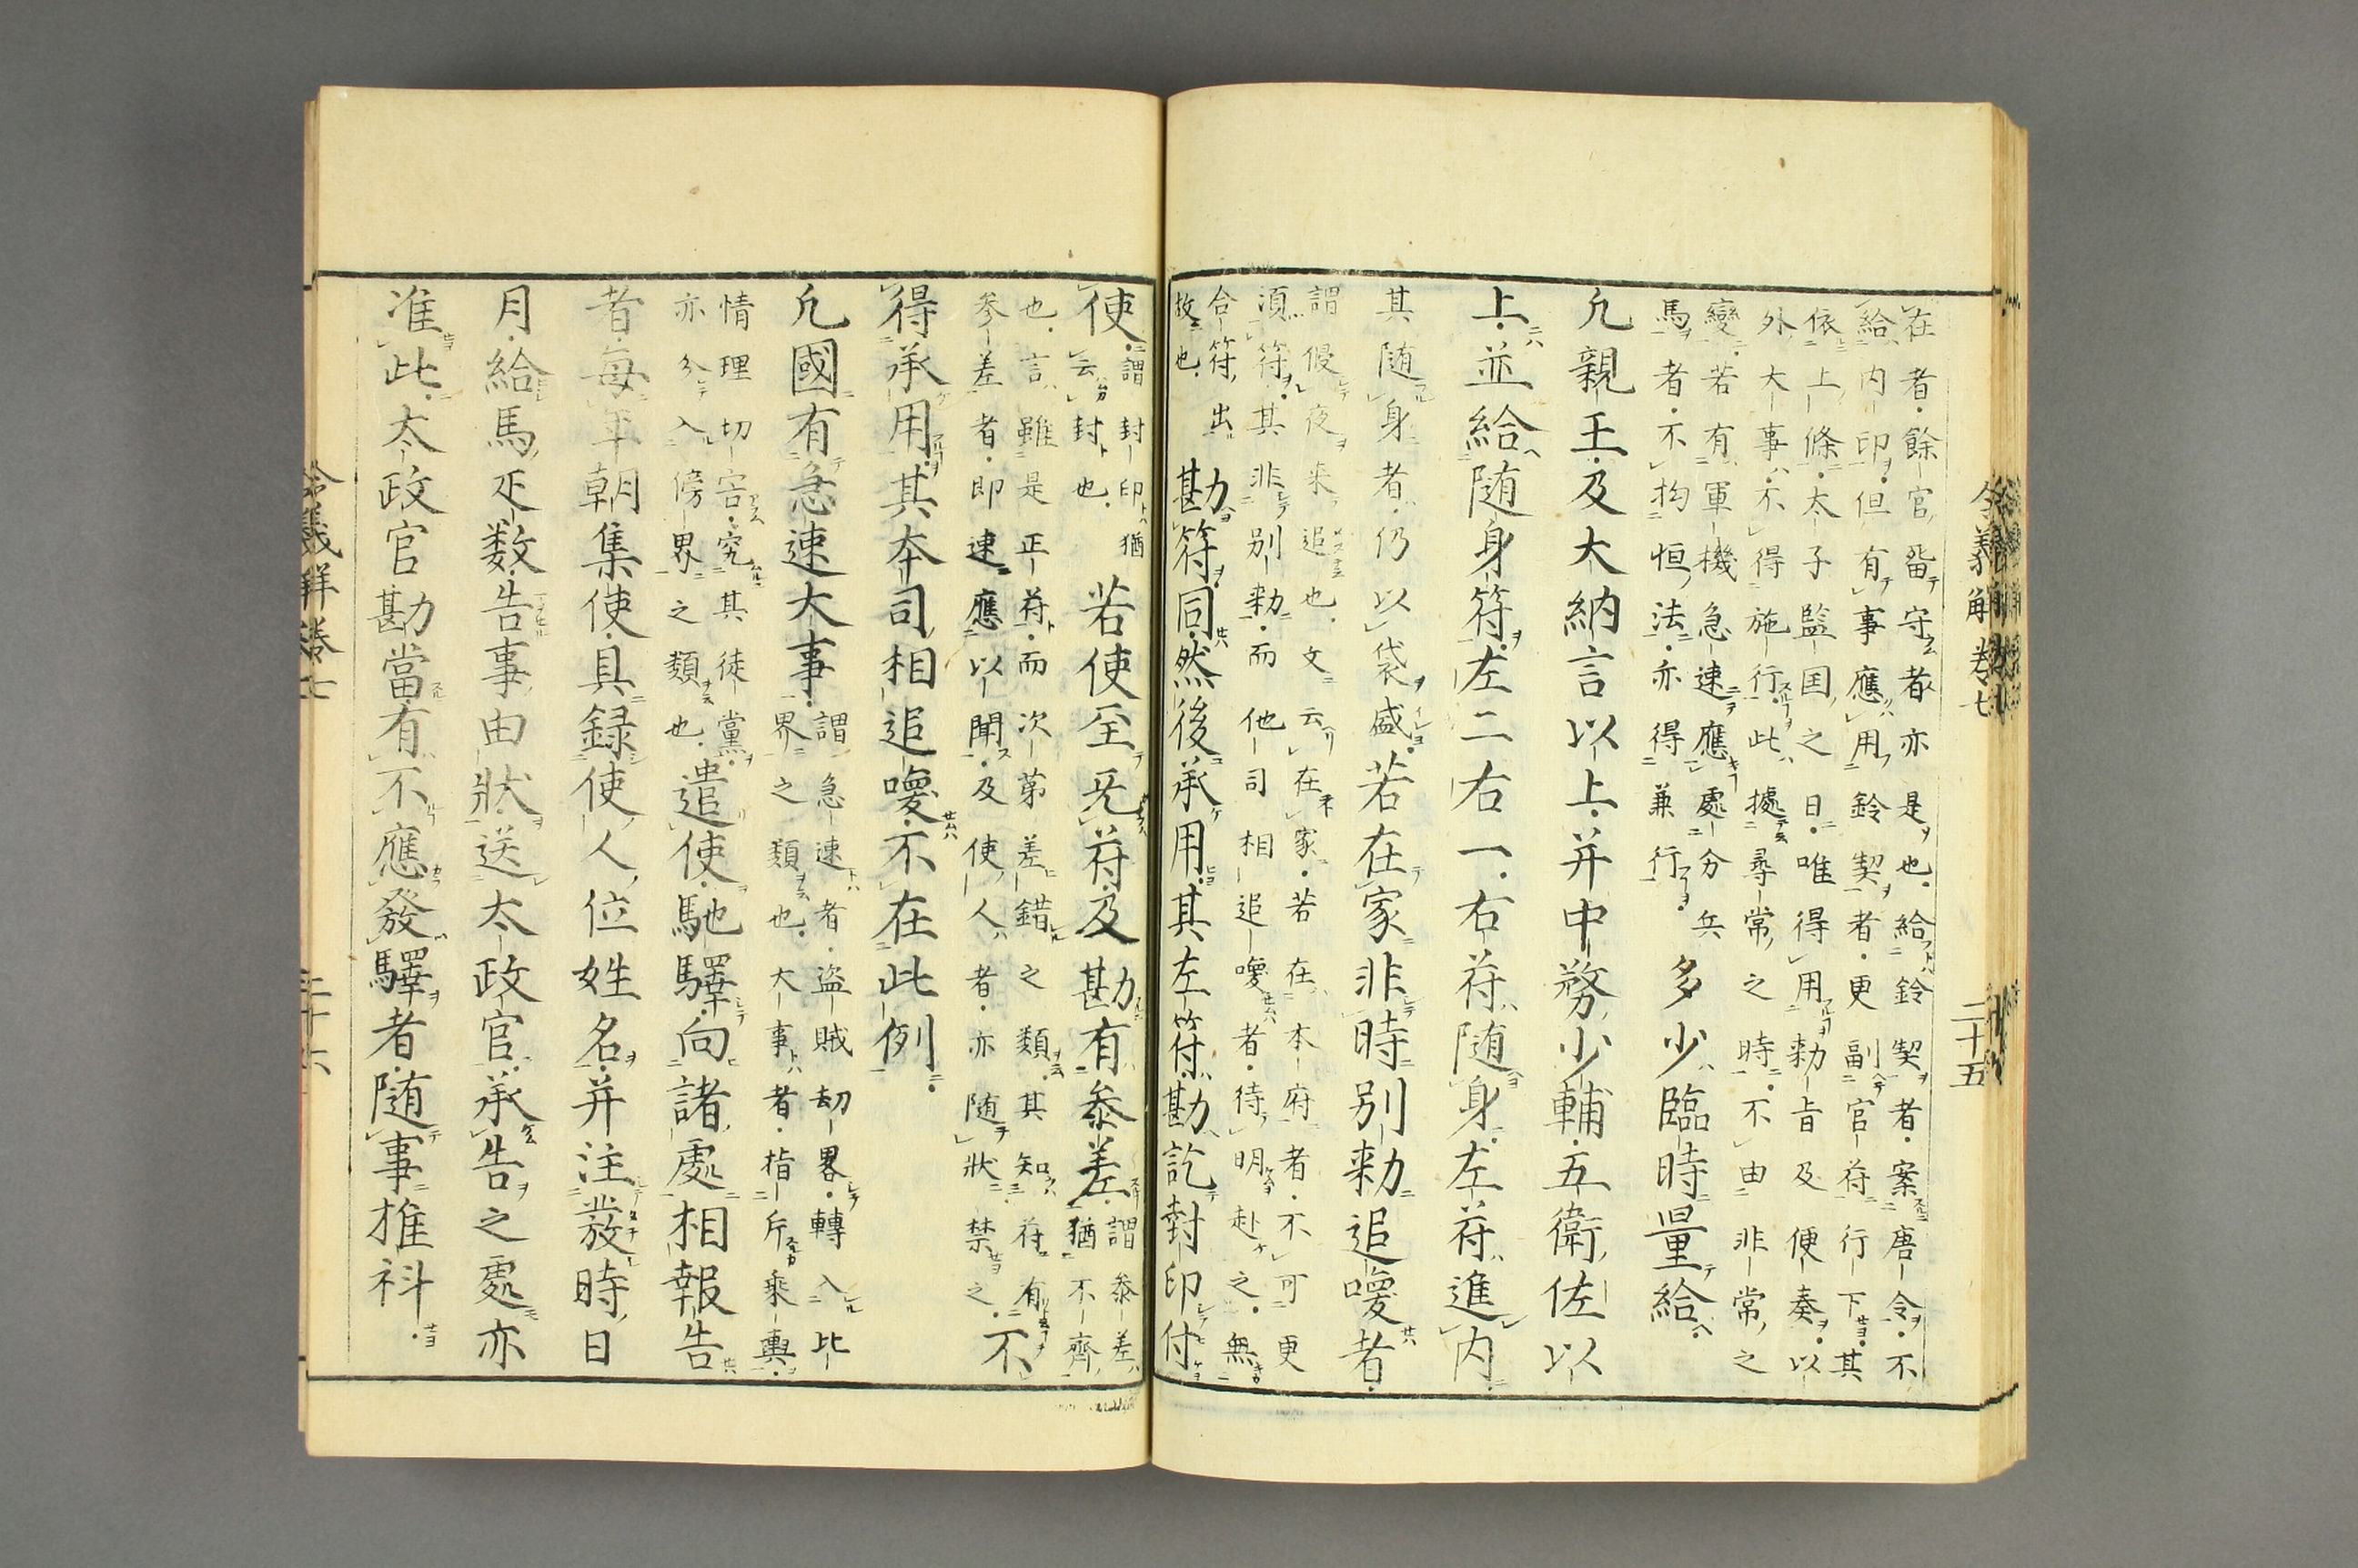 令義解卷七
二十五
在者餘官畄守者亦是也給鈴契者案唐令不
給内印但有事應用鈴契者更副官符行下其
依上條太子監国之日唯得用勅旨及便奏以
外大事不得施行此據尋常之時不由非常之
變若有軍機急速應處分兵
馬者不拘恒法亦得兼行
多少臨時量給
凢親王及大納言以上并中務少輔五衛佐以
上並給随身符左二右一右符随身左符進内
其随身者仍以袋盛若在家非時別勅追喚者
謂假夜来追也文云在家若在本府者不可更
須符其非別勅而他司相追喚者待明赴之無
合符出
故也
勘符同然後承用其左符勘訖封印付
使
謂封印猶
云封也
若使至无符及勘有参差
謂参差
猶不齊
也言雖是正符而次第差錯之類其知符有
参差者即速應以聞及使人者亦随状禁之
不
得承用其本司相追喚不在此例
凢國有急速大事
謂急速者盗賊刧畧轉入比
界之類也大事者指斥乗輿
情理切害究其徒黨
亦分入傍界之類也
遣使馳驛向諸處相報告
者毎年朝集使具録使人位姓名并注發時日
月給馬疋数告事由状送太政官承告之處亦
准此太政官勘當有不應發驛者随事推科
令義解卷七
二十六